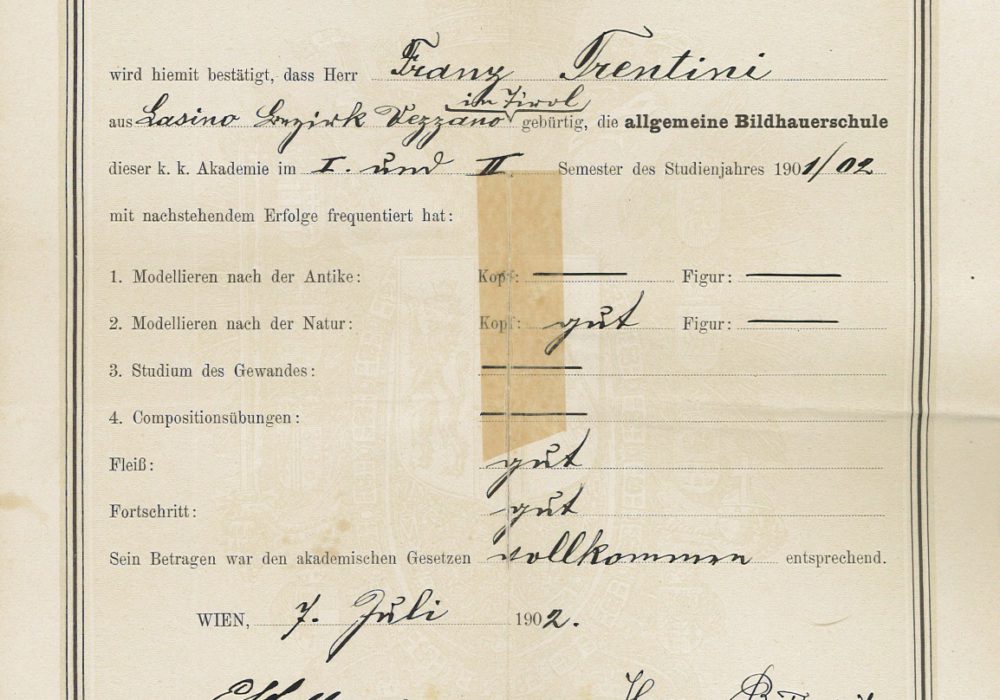 wird hiemit bestätigt, dass Herr Franz Trentini
in Tirol
aus Lasino Bezirk Vezzano gebürtig, die allgemeine Bildhauerschule
dieser k. k. Akademie im I. und II Semester des Studienjahres 1901/02
mit nachstehendem Erfolge frequentiert hat:
1. Modellieren nach der Antike: Kopf: — Figur: —
2. Modellieren nach der Natur: Kopf: gut Figur: —
3. Studium des Gewandes: —
4. Compositionsübungen: —
Fleiß: gut
Fortschritt: gut
Sein Betragen war den akademischen Gesetzen vollkommen entsprechend.
WIEN, 7. Juli 1902.